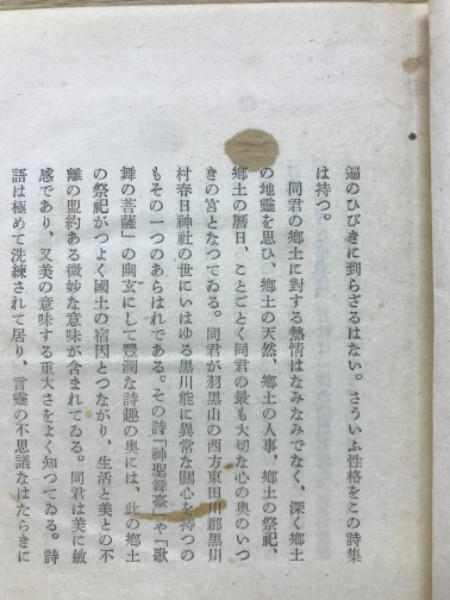 遍のひびきに到らざるはない。さういふ性格をこの詩集
は持つ。
同君の鄕土に對する熱情はなみなみでなく、深く鄕土
の地靈を思ひ、鄕土の天然、鄕土の人事、鄕土の祭祀、
鄕土の曆日、ことごとく同君の最も大切な心の奧のいつ
きの宮となつてゐる。同君が羽黑山の西方東田川郡黑川
村春日神社の世にいはゆる黑川能に異常な關心を持つの
もその一つのあらはれである。その詩「神聖舞臺」や「歌
舞の菩薩」の幽玄にして豐潤な詩趣の奧には、此の鄕土
の祭祀がつよく國土の宿因とつながり、生活と美との不
離の盟約ある微妙な意味が含まれてゐる。同君は美に敏
感であり、又美の意味する重大さをよく知つてゐる。詩
語は極めて洗練されて居り、言靈の不思議なはたらきに